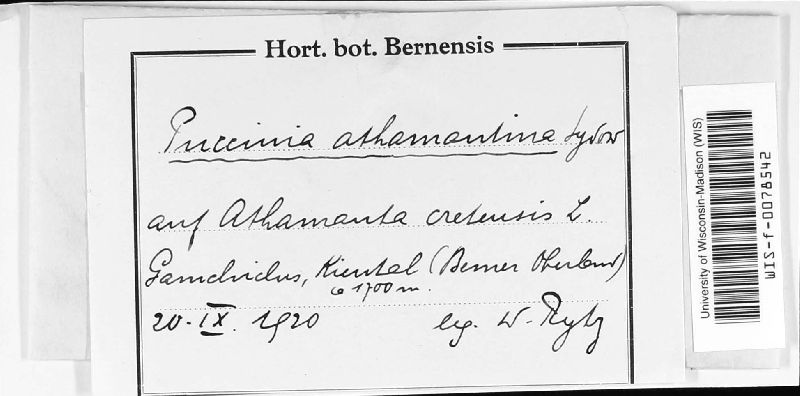 Hort. bot. Bernensis
Puccinia athamantina Sydow
auf Athamanta cretensis L.
Kiental (Berner Oberland)
ca 1700 m.
20. IX. 1920 leg. W. Rytz
University of Wisconsin-Madison (WIS)
WIS-f-0078542